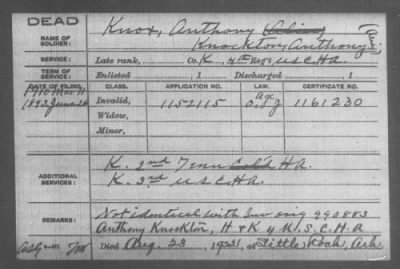 DEAD
NAME OF SOLDIER: Knox, Anthony (Alias)
Knockton, Anthony
SERVICE: Late rank, Co. K, 4th Reg't U.S.C.H.A.
TERM OF SERVICE: Enlisted , 1 Discharged , 1
DATE OF FILING. CLASS. APPLICATION NO. LAW. CERTIFICATE NO.
1893 June 26 Invalid, 1152115 1161230
Widow,
Minor,
ADDITIONAL SERVICES: K. 3rd Tenn Col'd H.A.
K. 3rd U.S.C.H.A.
REMARKS: Not identical with Inv orig 990883
Anthony Knockton, H & K 4 U.S.C.H.A
Died Aug. 23, 1921, at Little Rock, Ark